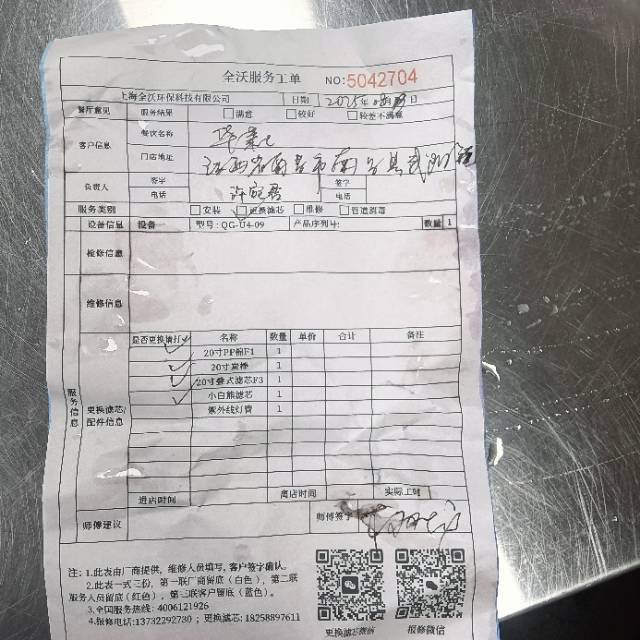 全沃服务工单 NO:5042704
上海全沃环保科技有限公司 日期 日
餐厅意见 服务结果 满意 较好 较差不满意
客户信息 餐饮名称
门店地址
负责人 签字 签字
电话 电话
服务类别 安装 更换滤芯 维修 管道消毒
设备信息 设备 型号:QG-U4-09 产品序列号: 数量 1
检修信息
维修信息
服务信息
更换滤芯/配件信息
是否更换请打√ 名称 数量 单价 合计 备注
20寸PP棉F1 1
20寸炭棒 1
20寸叠式滤芯F3 1
小白熊滤芯 1
紫外线灯管 1
进店时间 离店时间 实际工时
师傅建议 师傅签字
注:1.此表由厂商提供,维修人员填写,客户签字确认。
2.此表一式三份,第一联厂商留底(白色),第二联
服务人员留底(红色),第三联客户留底(蓝色)。
3.全国服务热线:4006121926
4.报修电话:13732292730;更换滤芯:18258897611
更换滤芯微信 报修微信